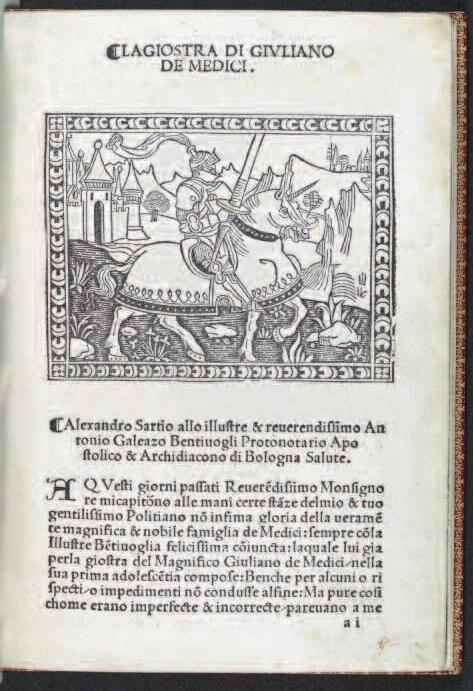 ⸿LA GIOSTRA DI GIVLIANO
DE MEDICI.
⸿Alexandro Sartio allo illustre & reuerendissimo An
tonio Galeazo Bentiuogli Protonotario Apo
stolico & Archidiacono di Bologna Salute.
A QVesti giorni passati Reuerēdissimo Monsigno
re mi capitōno alle mani certe stāze del mio & tuo
gentilissimo Politiano nō infima gloria della ueramē
te magnifica & nobile famiglia de Medici: sempre cōla
Illustre Bētiuoglia felicissima cōiuncta: laquale lui gia
perla giostra del Magnifico Giuliano de Medici/nella
sua prima adolescētia compose: Benche per alcuni o ri
specti/o impedimenti nō condusse alfine: Ma pure cosi
chome erano imperfecte & incorrecte/pareuano a me
a i